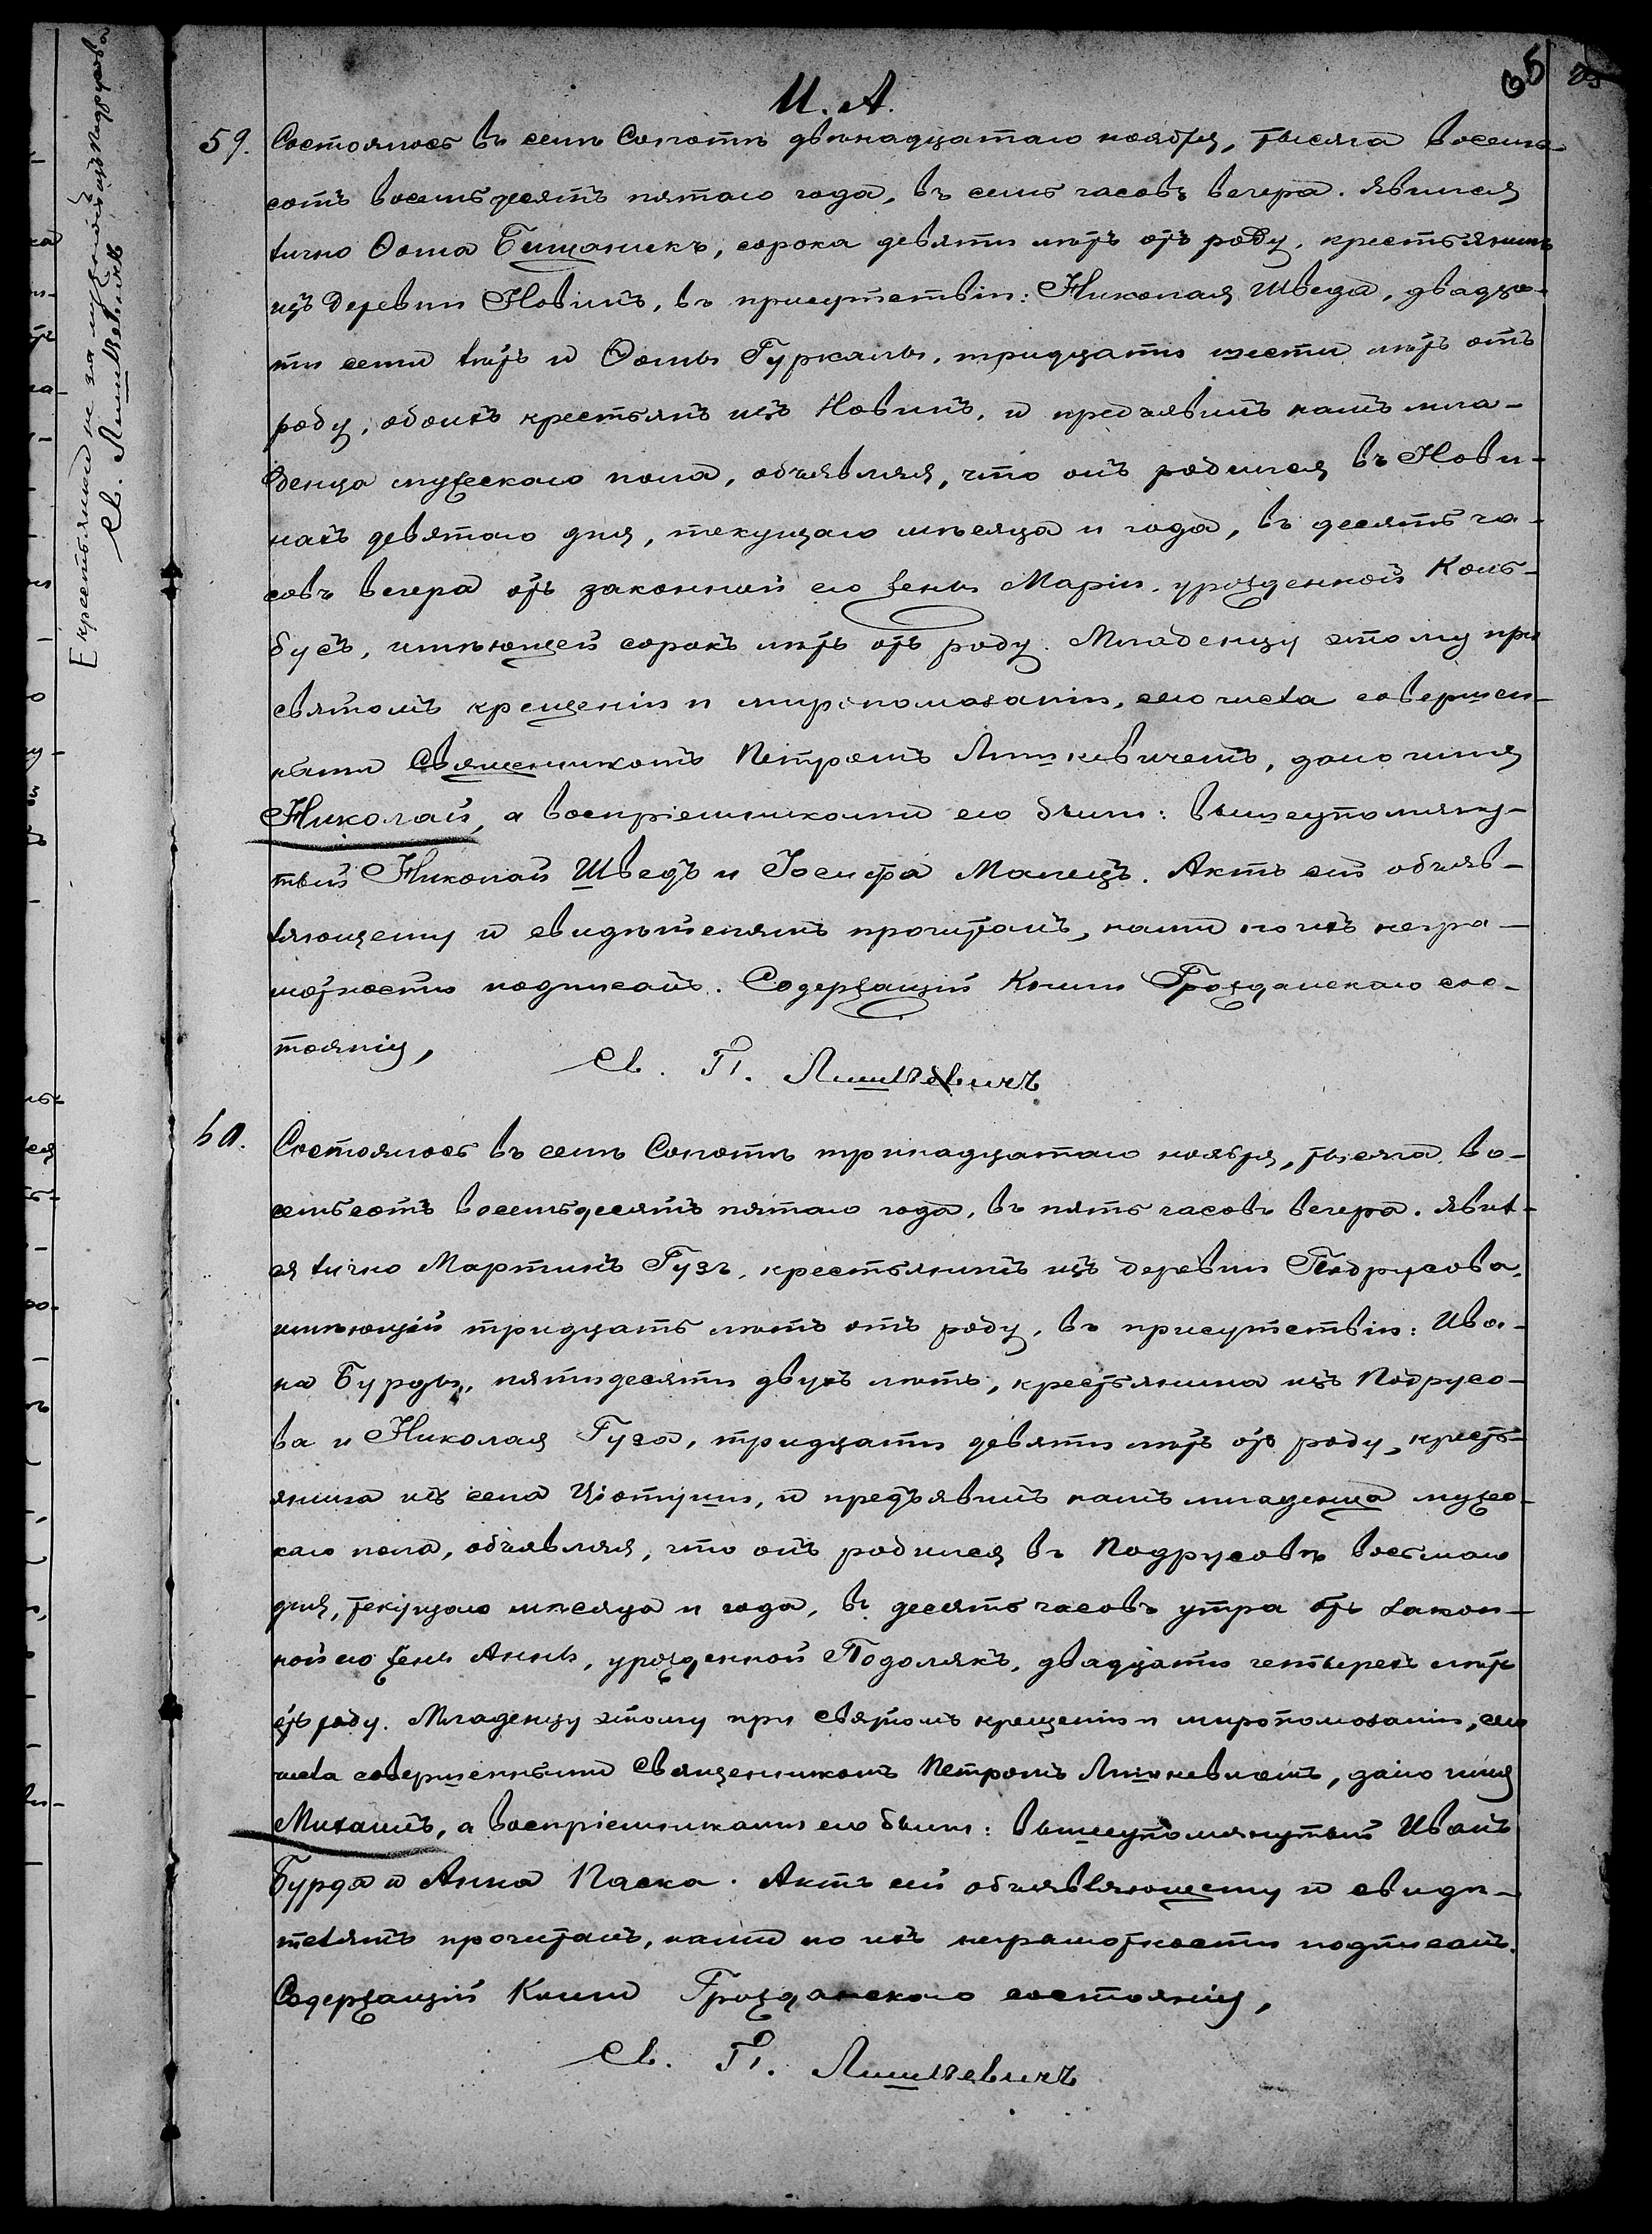 И. А.
65
59. Состоялось въ селѣ Сопотѣ двѣнадцатаго ноября, тысяча восемь-
сотъ восемьдесятъ пятаго года, въ семь часовъ вечера. Явился
лично Ѳома Бищаникъ, сорока девяти лѣтъ отъ роду, крестьянинъ
изъ деревни Новинъ, въ присутствіи: Николая Шведа, двадца-
ти семи лѣтъ и Ѳомы Гуркалы, тридцати шести лѣтъ отъ
роду, обоихъ крестьянъ изъ Новинъ, и предъявилъ намъ мла-
денца мужескаго пола, объявляя, что онъ родился въ Нови-
нахъ девятаго дня, текущаго мѣсяца и года, въ десять ча-
совъ вечера отъ законной его жены Маріи, урожденной Коль-
бусъ, имѣющей сорокъ лѣтъ отъ роду. Младенцу этому при
святомъ крещеніи и миропомазаніи, сего числа совершен-
ными Священникомъ Петромъ Лишкевичемъ, дано имя
Николай, а воспріемниками его были: вышеупомяну-
тый Николай Шведъ и Іосифа Малецъ. Актъ сей объяв-
ляющему и свидѣтелямъ прочитанъ, нами по ихъ негра-
мотности подписанъ. Содержащій Книги Гражданскаго сос-
тоянія,
Св. П. Лишкевичъ
60. Состоялось въ селѣ Сопотѣ тринадцатаго ноября, тысяча во-
семьсотъ восемьдесятъ пятаго года, въ пять часовъ вечера. Явил-
ся лично Мартинъ Гузъ, крестьянинъ изъ деревни Подрусова,
имѣющій тридцать лѣтъ отъ роду, въ присутствіи: Ива-
на Бурды, пятидесяти двухъ лѣтъ, крестьянина изъ Подрусо-
ва и Николая Гуза, тридцати девяти лѣтъ отъ роду, кресть-
янина изъ села Ціотуши, и предъявилъ намъ младенца мужес-
каго пола, объявляя, что онъ родился въ Подрусовѣ восьмаго
дня, текущаго мѣсяца и года, въ десять часовъ утра отъ закон-
ной его жены Анны, урожденной Подолякъ, двадцати четырехъ лѣтъ
отъ роду. Младенцу этому при святомъ крещеніи и миропомазаніи, сего
числа совершенными Священникомъ Петромъ Лишкевичемъ, дано имя
Михаилъ, а воспріемниками его были: вышеупомянутый Иванъ
Бурда и Анна Паска. Актъ сей объявляющему и свидѣ-
телямъ прочитанъ, нами по ихъ неграмотности подписанъ.
Содержащій Книги Гражданскаго состоянія,
Св. П. Лишкевичъ